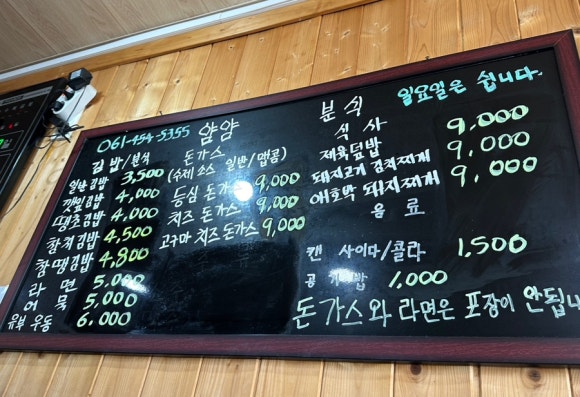 061-454-5355 얌얌 분식 일요일은 쉽니다.
김밥/분식
일반김밥 3,500
깻잎김밥 4,000
땡초김밥 4,000
참치김밥 4,500
참땡김밥 4,800
라면 5,000
어묵 5,000
유부 우동 6,000
돈가스
(수제 소스 일반/맵콤)
등심 돈가스 9,000
치즈 돈가스 9,000
고구마 치즈 돈가스 9,000
식사
제육덮밥 9,000
돼지고기 김치찌개 9,000
애호박 돼지찌개 9,000
음료
캔 사이다/콜라 1,500
공기밥 1,000
돈가스와 라면은 포장이 안됩니